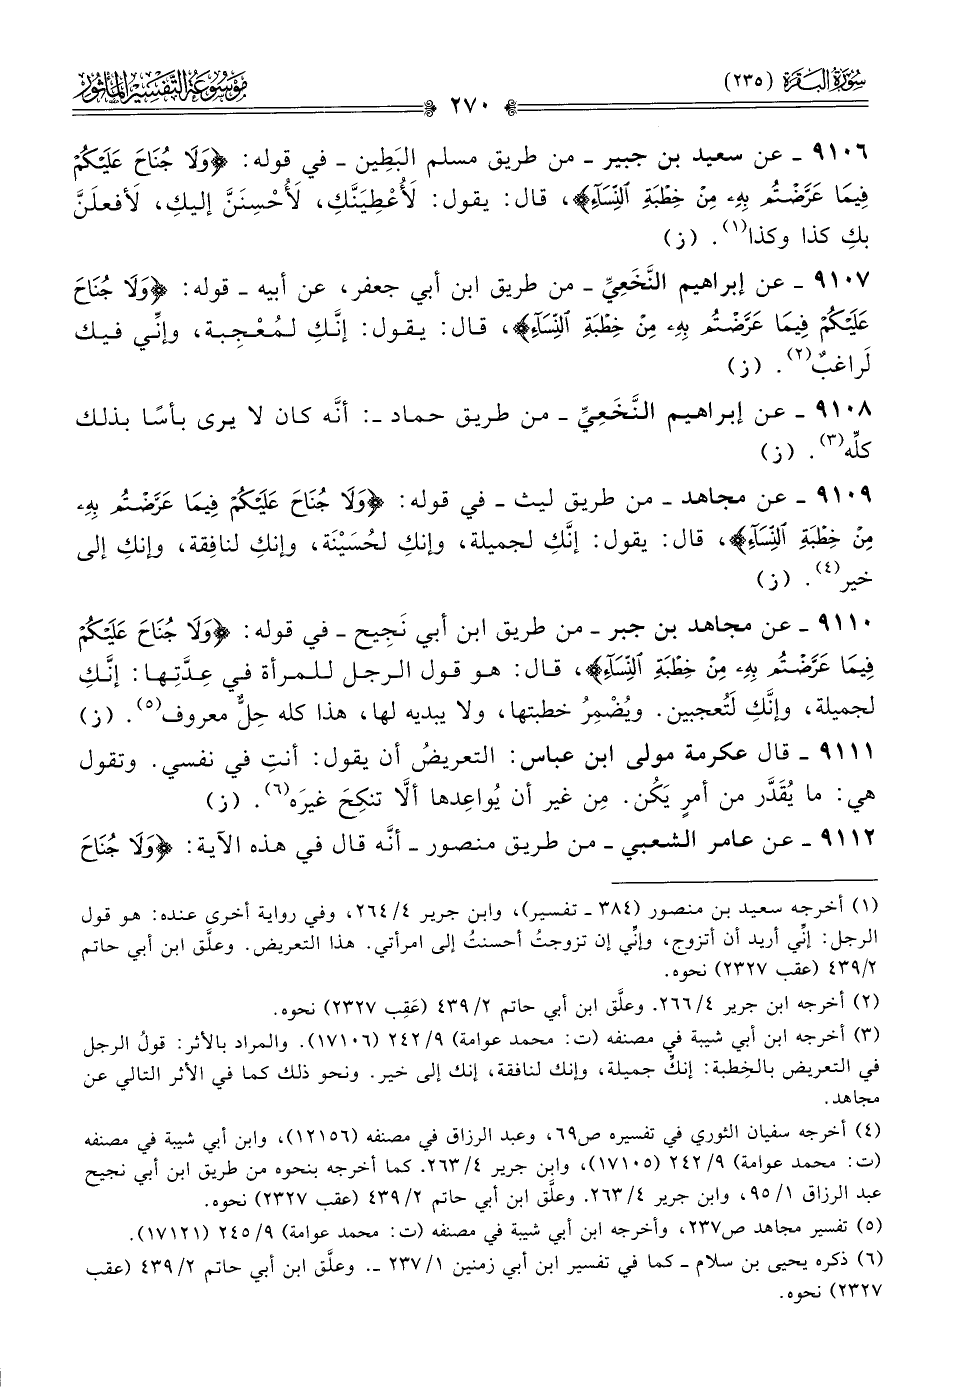 سورة البقرة (٢٣٥)
٢٧٠
موسوعة التفسير المأثور
٩١٠٦ ـ عن سعيد بن جبير ـ من طريق مسلم البَطِين ـ في قوله: ﴿وَلَا جُنَاحَ عَلَيْكُمْ
فِيمَا عَرَّضْتُم بِهِۦ مِنْ خِطْبَةِ ٱلنِّسَآءِ﴾، قال: يقول: لَأُعْطِيَنَّكِ، لَأُحْسِنَنَّ إليكِ، لَأفعلَنَّ
بكِ كذا وكذا(١). (ز)
٩١٠٧ ـ عن إبراهيم النَّخَعِيِّ ـ من طريق ابن أبي جعفر، عن أبيه ـ قوله: ﴿وَلَا جُنَاحَ
عَلَيْكُمْ فِيمَا عَرَّضْتُم بِهِۦ مِنْ خِطْبَةِ ٱلنِّسَآءِ﴾، قال: يقول: إنَّكِ لمُعْجِبة، وإنِّي فيك
لَراغبٌ(٢). (ز)
٩١٠٨ ـ عن إبراهيم النَّخَعِيِّ ـ من طريق حماد ـ: أنَّه كان لا يرى بأسًا بذلك
كلِّه(٣). (ز)
٩١٠٩ ـ عن مجاهد ـ من طريق ليث ـ في قوله: ﴿وَلَا جُنَاحَ عَلَيْكُمْ فِيمَا عَرَّضْتُم بِهِۦ
مِنْ خِطْبَةِ ٱلنِّسَآءِ﴾، قال: يقول: إنَّكِ لجميلة، وإنكِ لحُسَيْنَة، وإنكِ لنافِقة، وإنكِ إلى
خير(٤). (ز)
٩١١٠ ـ عن مجاهد بن جبر ـ من طريق ابن أبي نَجِيح ـ في قوله: ﴿وَلَا جُنَاحَ عَلَيْكُمْ
فِيمَا عَرَّضْتُم بِهِۦ مِنْ خِطْبَةِ ٱلنِّسَآءِ﴾، قال: هو قول الرجل للمرأة في عِدَّتِها: إنَّكِ
لجميلة، وإنَّكِ لَتُعجبين. ويُضْمِرُ خطبتها، ولا يبديه لها، هذا كله حِلٌّ معروف(٥). (ز)
٩١١١ ـ قال عكرمة مولى ابن عباس: التعريضُ أن يقول: أنتِ في نفسي. وتقول
هي: ما يُقَدَّر من أمرٍ يَكُن. مِن غير أن يُواعِدها ألَّا تنكِحَ غيرَه(٦). (ز)
٩١١٢ ـ عن عامر الشعبي ـ من طريق منصور ـ أنَّه قال في هذه الآية: ﴿وَلَا جُنَاحَ
(١) أخرجه سعيد بن منصور (٣٨٤ ـ تفسير)، وابن جرير ٤/ ٢٦٤، وفي رواية أخرى عنده: هو قول
الرجل: إنِّي أريد أن أتزوج، وإنِّي إن تزوجتُ أحسنتُ إلى امرأتي. هذا التعريض. وعلَّق ابن أبي حاتم
٢/ ٤٣٩ (عقب ٢٣٢٧) نحوه.
(٢) أخرجه ابن جرير ٤/ ٢٦٦. وعلَّق ابن أبي حاتم ٢/ ٤٣٩ (عَقِب ٢٣٢٧) نحوه.
(٣) أخرجه ابن أبي شيبة في مصنفه (ت: محمد عوامة) ٩/ ٢٤٢ (١٧١٠٦). والمراد بالأثر: قولُ الرجل
في التعريض بالخِطبة: إنكِّ جميلة، وإنك لنافقة، إنك إلى خير. ونحو ذلك كما في الأثر التالي عن
مجاهد.
(٤) أخرجه سفيان الثوري في تفسيره ص٦٩، وعبد الرزاق في مصنفه (١٢١٥٦)، وابن أبي شيبة في مصنفه
(ت: محمد عوامة) ٩/ ٢٤٢ (١٧١٠٥)، وابن جرير ٤/ ٢٦٣. كما أخرجه بنحوه من طريق ابن أبي نجيح
عبد الرزاق ١/ ٩٥، وابن جرير ٤/ ٢٦٣. وعلَّق ابن أبي حاتم ٢/ ٤٣٩ (عقب ٢٣٢٧) نحوه.
(٥) تفسير مجاهد ص٢٣٧، وأخرجه ابن أبي شيبة في مصنفه (ت: محمد عوامة) ٩/ ٢٤٥ (١٧١٢١).
(٦) ذكره يحيى بن سلام ـ كما في تفسير ابن أبي زمنين ١/ ٢٣٧ ـ. وعلَّق ابن أبي حاتم ٢/ ٤٣٩ (عقب
٢٣٢٧) نحوه.